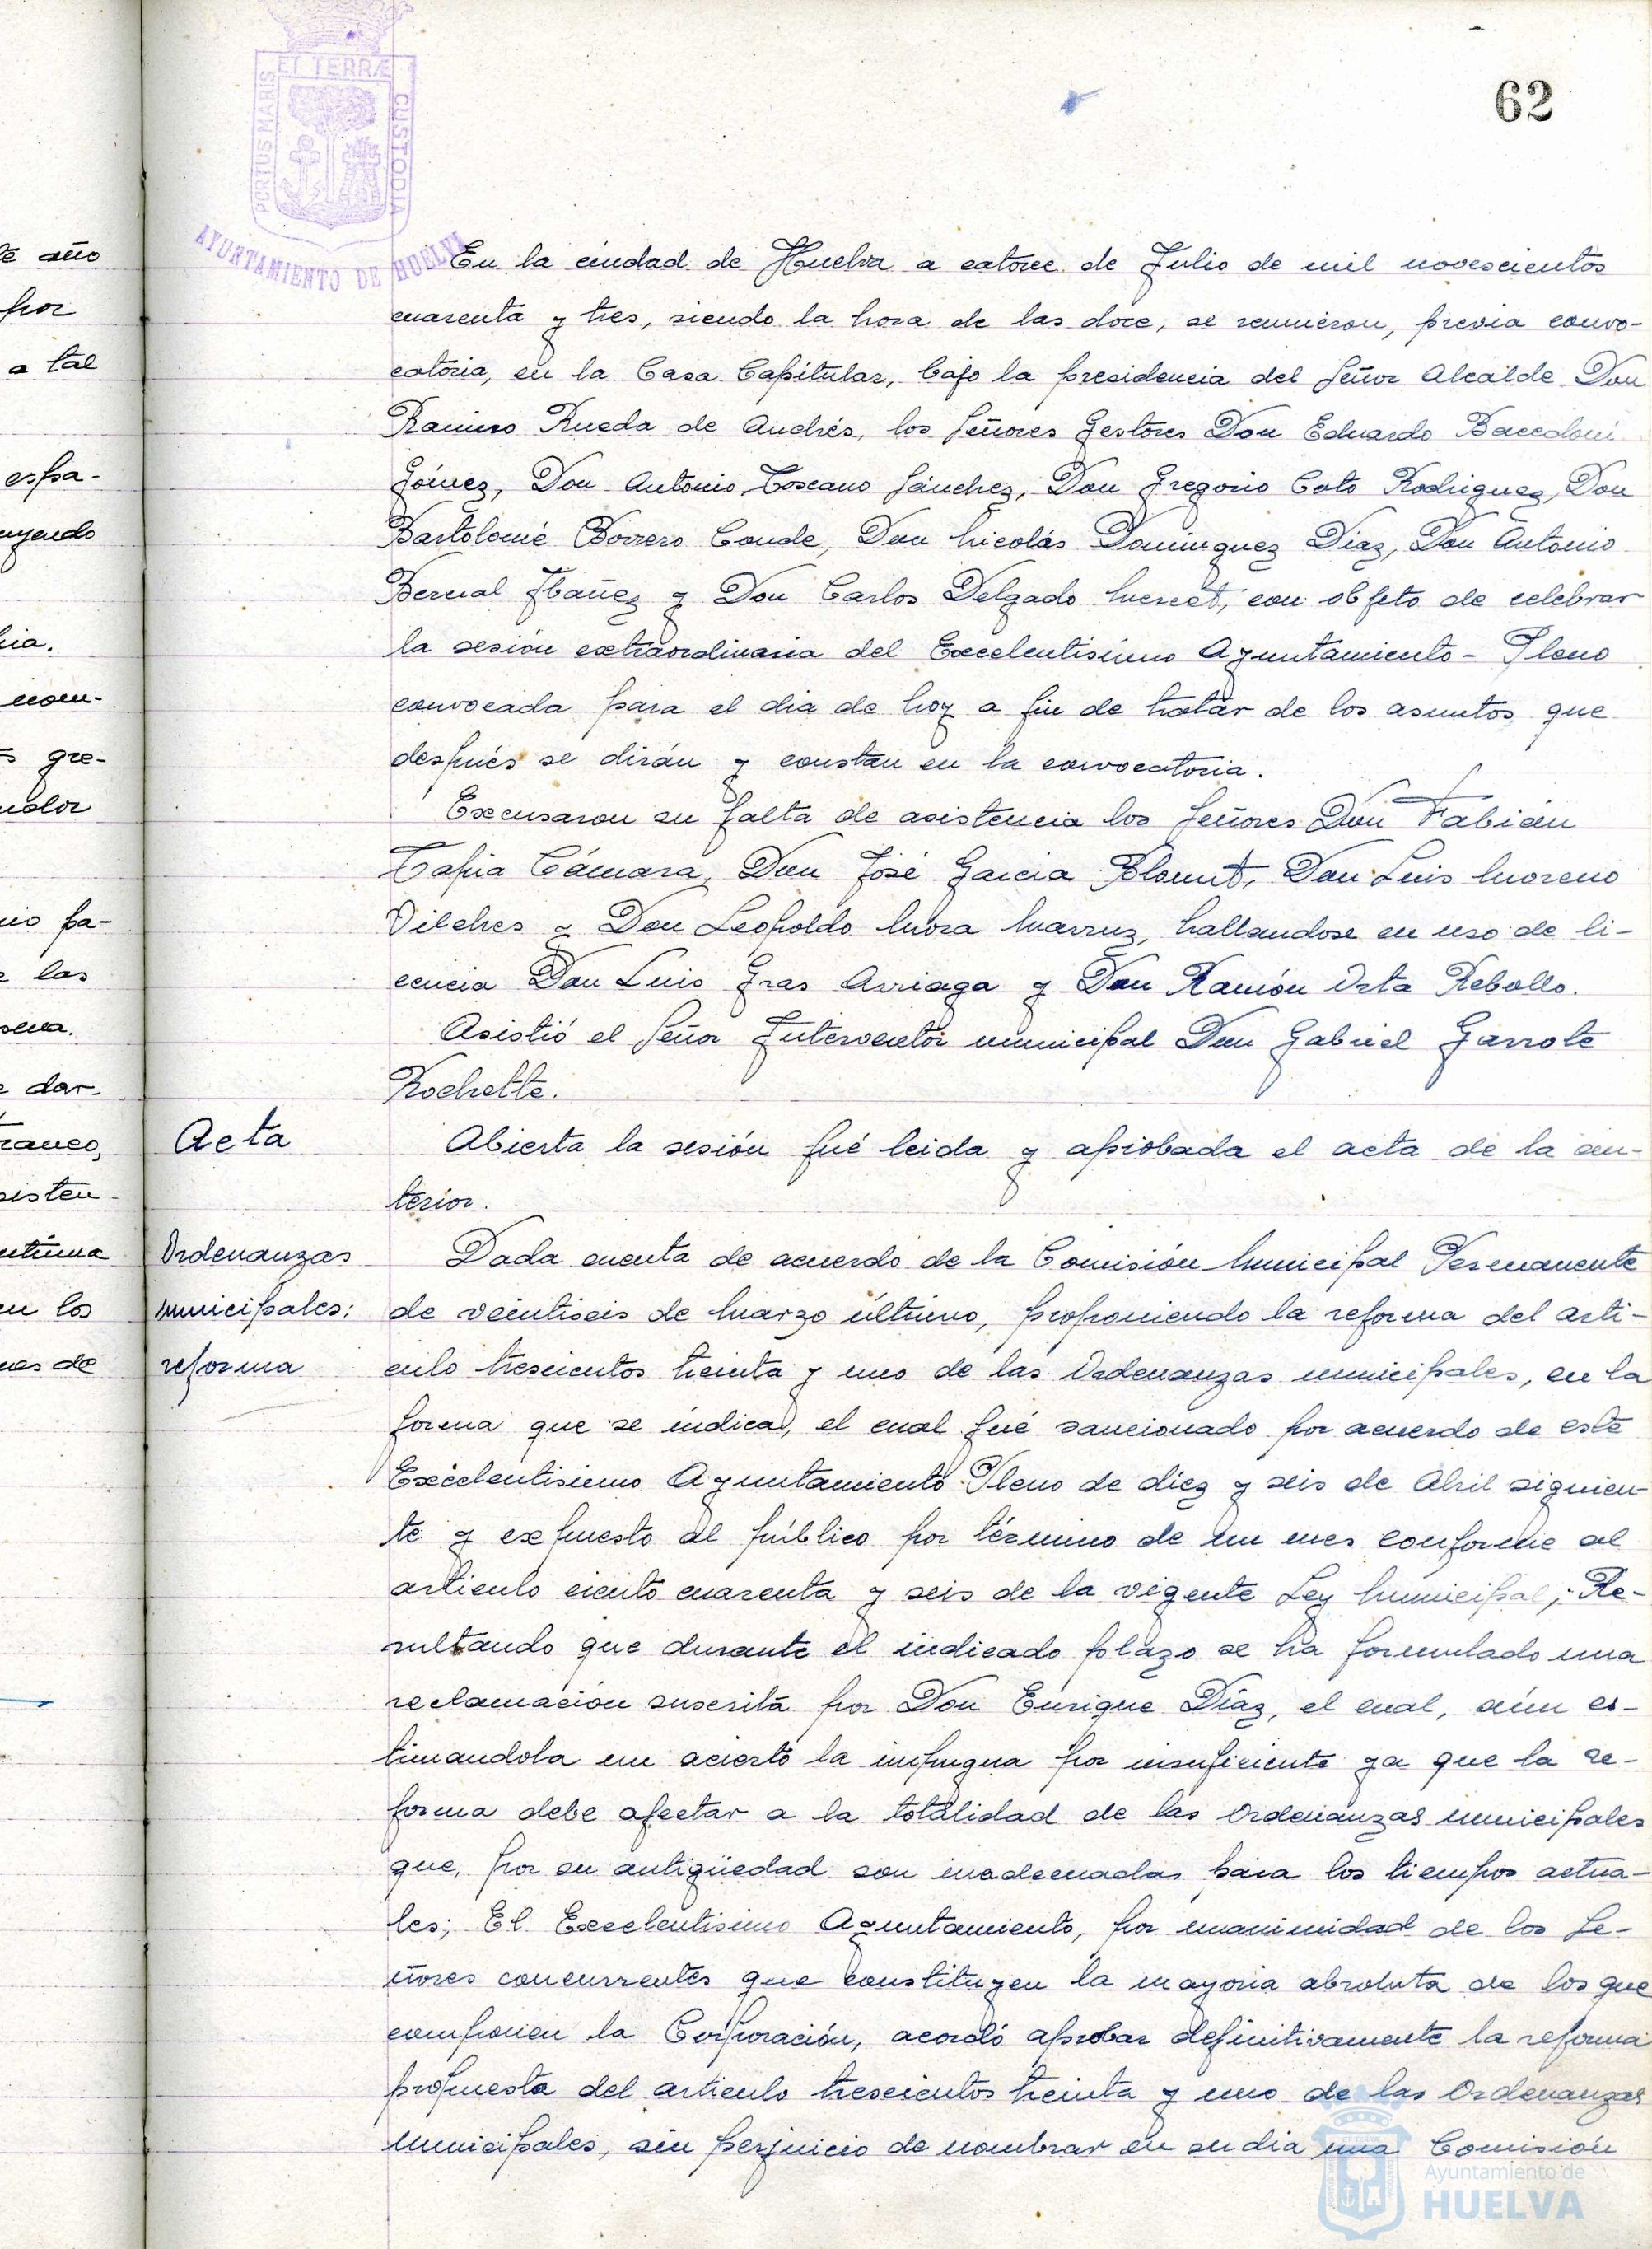 62
PORTUS MARIS ET TERRÆ CUSTODIA
AYUNTAMIENTO DE HUELVA
te año
por
a tal
espa-
uyendo
nom-
gre-
pa-
las
dar-
sisten-
en los
En la ciudad de Huelva a catorce de Julio de mil novescientos
cuarenta y tres, siendo la hora de las doce, se reunieron, previa convo-
catoria, en la Casa Capitular, bajo la presidencia del Señor Alcalde Don
Ramiro Rueda de Andrés, los Señores Gestores Don Eduardo Baccoloni
Gómez, Don Antonio Toscano Sánchez, Don Gregorio Coto Rodriguez, Don
Bartolomé Borrero Conde, Don Nicolás Dominguez Diaz, Don Antonio
Bernal Ibañez y Don Carlos Delgado Mercet, con objeto de celebrar
la sesión extraordinaria del Excelentisimo Ayuntamiento-Pleno
convocada para el dia de hoy a fin de tratar de los asuntos que
después se dirán y constan en la convocatoria.
Excusaron su falta de asistencia los Señores Don Fabián
Tapia Cámara, Don José Garcia Blount, Don Luis Moreno
Vilches y Don Leopoldo Mora Marruz, hallandose en uso de li-
cencia Don Luis Gras Arriaga y Don Ramón Orta Rebollo.
Asistió el Señor Interventor municipal Don Gabriel Garrote
Rochette.
Acta
Abierta la sesión fué leida y aprobada el acta de la an-
terior.
Ordenanzas
municipales:
reforma
Dada cuenta de acuerdo de la Comisión Municipal Permanente
de veintiseis de Marzo último, proponiendo la reforma del arti-
culo trescientos treinta y uno de las Ordenanzas municipales, en la
forma que se indica, el cual fué sancionado por acuerdo de este
Excelentisimo Ayuntamiento Pleno de diez y seis de Abril siguien-
te y expuesto al público por término de un mes conforme al
articulo ciento cuarenta y seis de la vigente Ley Municipal; Re-
sultando que durante el indicado plazo se ha formulado una
reclamación suscrita por Don Enrique Díaz, el cual, aún es-
timandola un acierto la impugna por insuficiente ya que la re-
forma debe afectar a la totalidad de las Ordenanzas municipales
que, por su antigüedad son inadecuadas para los tiempos actua-
les; El Excelentisimo Ayuntamiento, por unanimidad de los Se-
ñores concurrentes que constituyen la mayoria absoluta de los que
componen la Corporación, acordó aprobar definitivamente la reforma
propuesta del articulo trescientos treinta y uno de las Ordenanzas
municipales, sin perjuicio de nombrar en su dia una Comisión
Ayuntamiento de
HUELVA